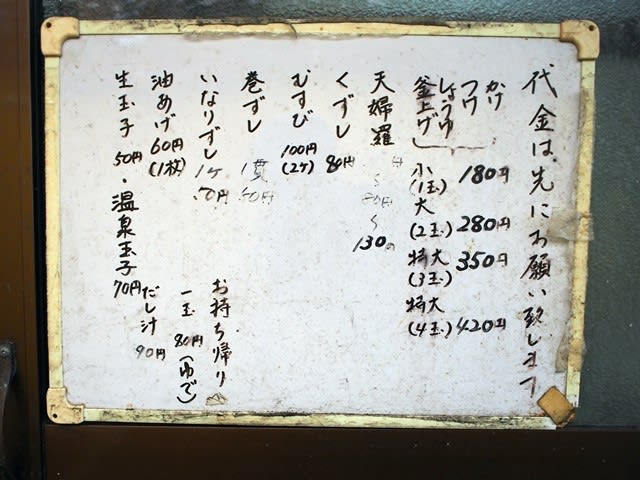 代金は先にお願い致します
かけ
つけ
しょうゆ
釜上げ
小(1玉) 180円
大(2玉) 280円
特大(3玉) 350円
特大(4玉) 420円
天婦羅
円
〜
80円
〜
130円
くずし 80円
むすび 100円(2ヶ)
巻ずし 1貫 50円
いなりずし 1ヶ 50円
油あげ 60円(1枚)
生玉子 50円・温泉玉子 70円
お持ち帰り
一玉 80円(ゆで)
だし汁 90円